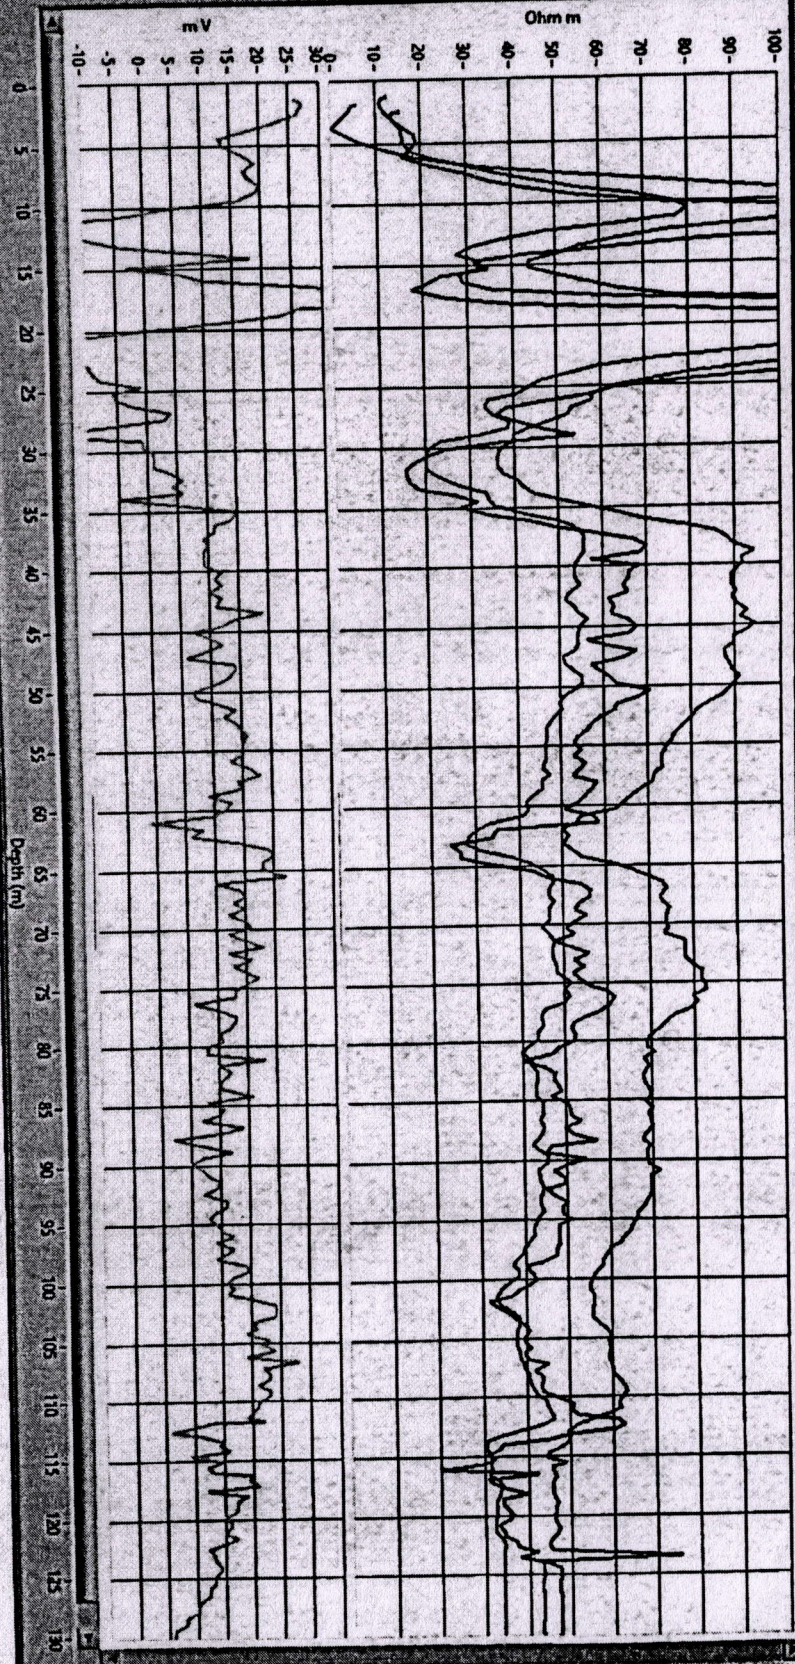 mV
Ohm m
-10-
-5-
0-
5-
10-
15-
20-
25-
30-
0-
10-
20-
30-
40-
50-
60-
70-
80-
90-
100-
0
5
10
15
20
25
30
35
40
45
50
55
60
65
70
75
80
85
90
95
100
105
110
115
120
125
130
Depth (m)